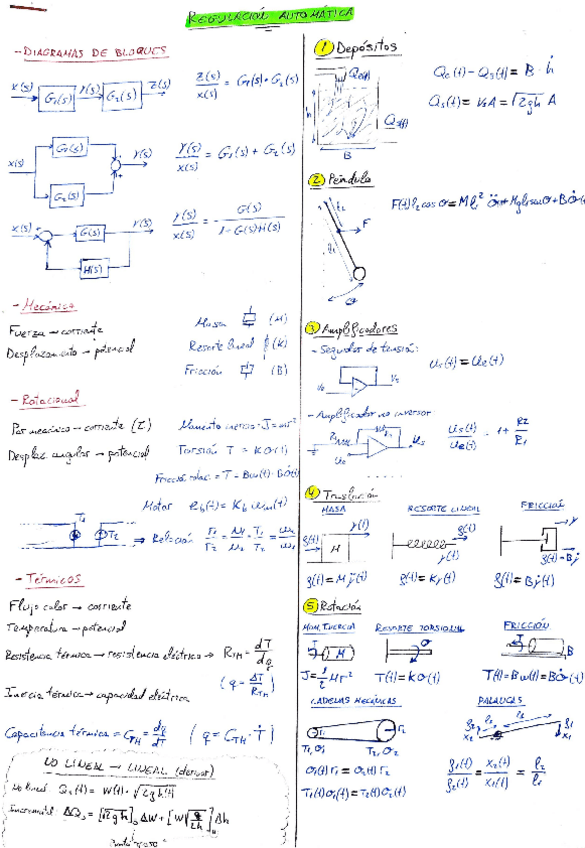 REGULACIÓN AUTOMÁTICA
- DIAGRAMAS DE BLOQUES
x(s) G₁(s) Y(s) G₂(s) Z(s)
Z(s)/X(s) = G₁(s)·G₂(s)
x(s) G₁(s) G₂(s) Y(s)
Y(s)/X(s) = G₁(s) + G₂(s)
x(s) G(s) H(s) Y(s)
Y(s)/X(s) = - G(s)/1-G(s)H(s)
- Mecánica
Fuerza → corriente
Desplazamiento → potencial
Massa (M)
Resorte lineal (K)
Fricción (B)
- Rotacional
Par mecánico → corriente (τ)
Desplac. angular → potencial
Momento inercia = J = mr²
Torsión T = Kθ(t)
Fricción rotac. = T = Bω(t) = Bθ̇(t)
Motor e_b(t) = K_b ω_m(t)
T₁ T₂ ⇒ Relación
- Térmicos
Flujo calor → corriente
Temperatura → potencial
Resistencia térmica → resistencia eléctrica → R_TH = dT/dq
(q = ΔT/R_TH)
Inercia térmica → capacidad eléctrica
Capacitancia térmica = C_TH = dq/dT (q = C_TH · Ṫ)
NO LINEAL → LINEAL (derivar)
No lineal Q₂(t) = W(t) · √2gh(t)
Incremental ΔQ₂ = [√2gh]₀ ΔW + [W√g/2h]₀ Δh
① Depósitos
Qe(t) h Qs(t) B
Qe(t) - Qs(t) = B · ḣ
Qs(t) = VsA = √2gh A
② Péndulo
F θ
F(t)l₂ cos θ = Ml₁² θ̈ + Mgl₁senθ + Bθ̇(t)
③ Amplificadores
- Seguidor de tensión:
Ve Vs
Us(t) = Ue(t)
- Amplificador no inversor
Ue Us
Us(t)/Ue(t) = 1 + R2/R1
④ Translación
MASA RESORTE LINEAL FRICCIÓN
M
f(t) = MŸ(t) f(t) = KY(t) f(t) = BẎ(t)
⑤ Rotación
MOM. INERCIA RESORTE TORSIONAL FRICCIÓN
J = 1/2 Mr² T(t) = Kθ(t) T(t) = Bω(t) = Bθ̇(t)
CADENAS MECÁNICAS PALANCAS
T₁, θ₁ T₂, θ₂
θ₁(t) r₁ = θ₂(t) r₂
T₁(t) θ₁(t) = T₂(t) θ₂(t)
f₁(t)/f₂(t) = x₂(t)/x₁(t) = l₂/l₁